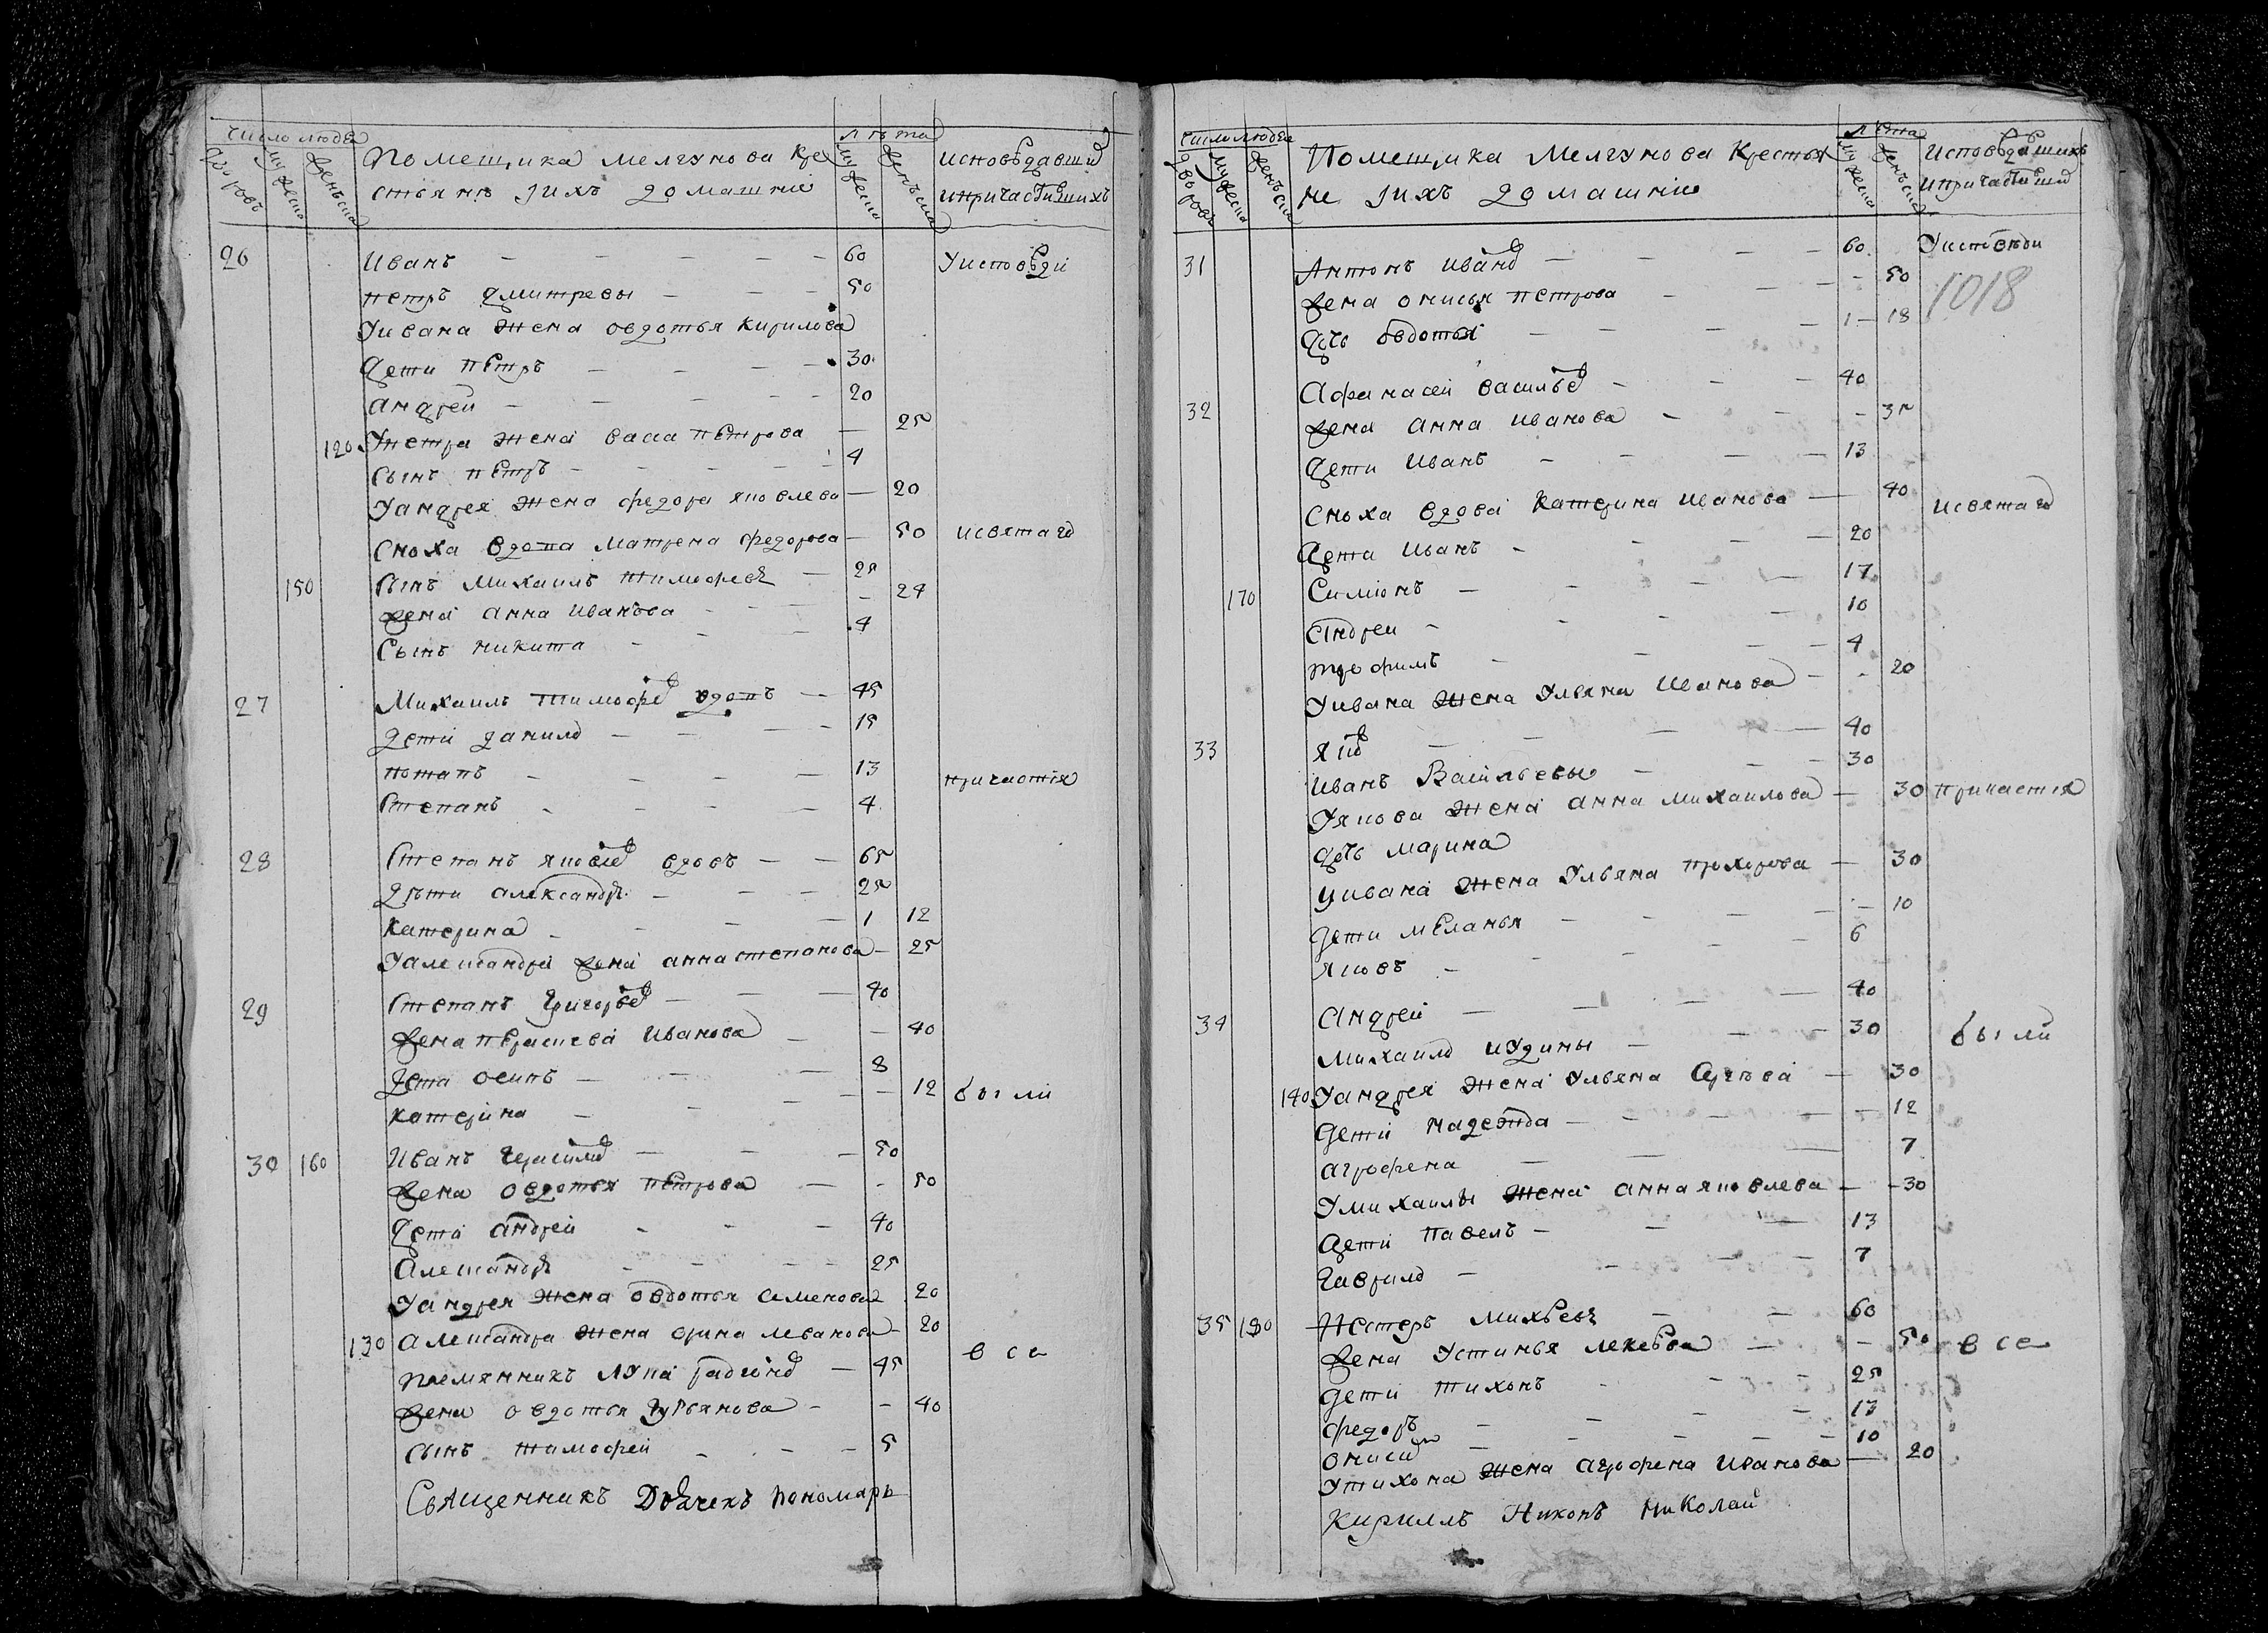 число людей
лѣта
дворовъ
мужеска
женъска
Помещика Мелгунова кре
стьянѣ ихъ домашнїе
мужеска
женъска
исповѣдавших
ипричастившихъ
26 Иванъ — 60 Уисповѣди
петръ дмитревы — 50
Уивана жена овдотья кирилова
дети петръ — 30
андреи — 20
120 Упетра жена васа петрова — 25
Сынъ петръ — 4
Уандрея жена федора яковлева — 20
Сноха вдова матрена федорова — 50 исвятаго
150 Сынъ михаилъ тимофеев — 25
жена анна иванова — 24
Сынъ никита — 4
27 Михаилъ тимофеев вдовъ — 45
дети данило — 15
потапъ — 13 причастїя
Степанъ — 4
28 Степанъ яковлев вдовъ — 65
дѣти александръ — 25
катерина — 1 12
Уалександра жена анна степанова — 25
29 Степанъ григорьев — 40
жена Иванова — 40
дети осипъ — 8
катерина — 12 были
30 160 Иванъ — 50
жена овдотья петрова — 50
дети андреи — 40
Александръ — 25
Уандрея жена овдотья семенова 20
130 Александра жена орина леванова — 20
племянникъ лука — 45 все
жена овдотья — 40
сынъ тимофеи — 5
Священникъ Дьячекъ пономарь
число людей
лѣта
дворовъ
мужеска
женъска
Помещика Мелгунова крестья
не ихъ домашнїе
мужеска
женъска
исповѣдавшихъ
ипричастившихъ
31 Антонъ иванов — 60 Уисповѣди
1018
жена онисья петрова — 50
дочь овдотья — 1 — 18
32 Афанасеи васильев — 40
жена анна иванова — 35
дети Иванъ — 13
Сноха вдова катерина иванова — 40 исвятаго
дети иванъ — 20
170 Симионъ — 17
андреи — 10
трофимъ — 4
Уивана жена ульяна иванова — 20
33 яков — 40
иванъ Васильевы — 30
Уякова жена анна михаилова — 30 причастия
дочь марина
Уивана жена ульяна прохорова — 30
дети меланья — 10
яковъ — 6
34 андреи — 40
михаило июдины — 30 были
140 Уандрея жена ульяна — 30
дети надежда — 12
агрофена — 7
Умихаилы жена анна яковлева — 30
дети павелъ — 13
гаврило — 7
35 180 Нестеръ михѣевъ — 60
жена устинья — 50 все
дети тихонъ — 25
федоръ — 13
онисим — 10
Утихона жена агрофена иванова — 20
кириллъ Никонъ николаи